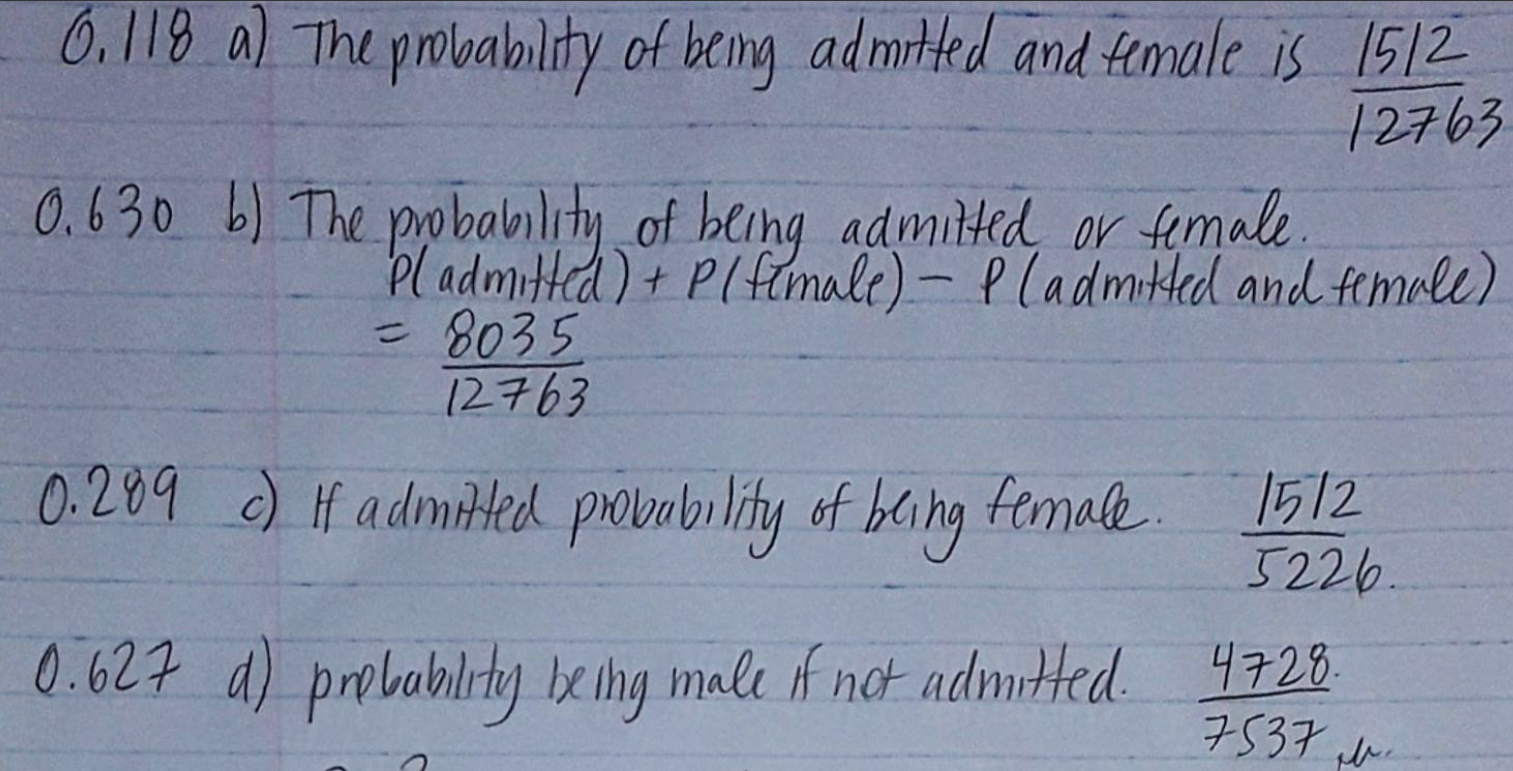 0.118 a) The probability of being admitted and female is 1512
12763
0.630 b) The probability of being admitted or female.
P(admitted) + P(female) - P(admitted and female)
= 8035
12763
0.289 c) If admitted probability of being female. 1512
5226.
0.627 d) probability being male if not admitted. 4728.
7537